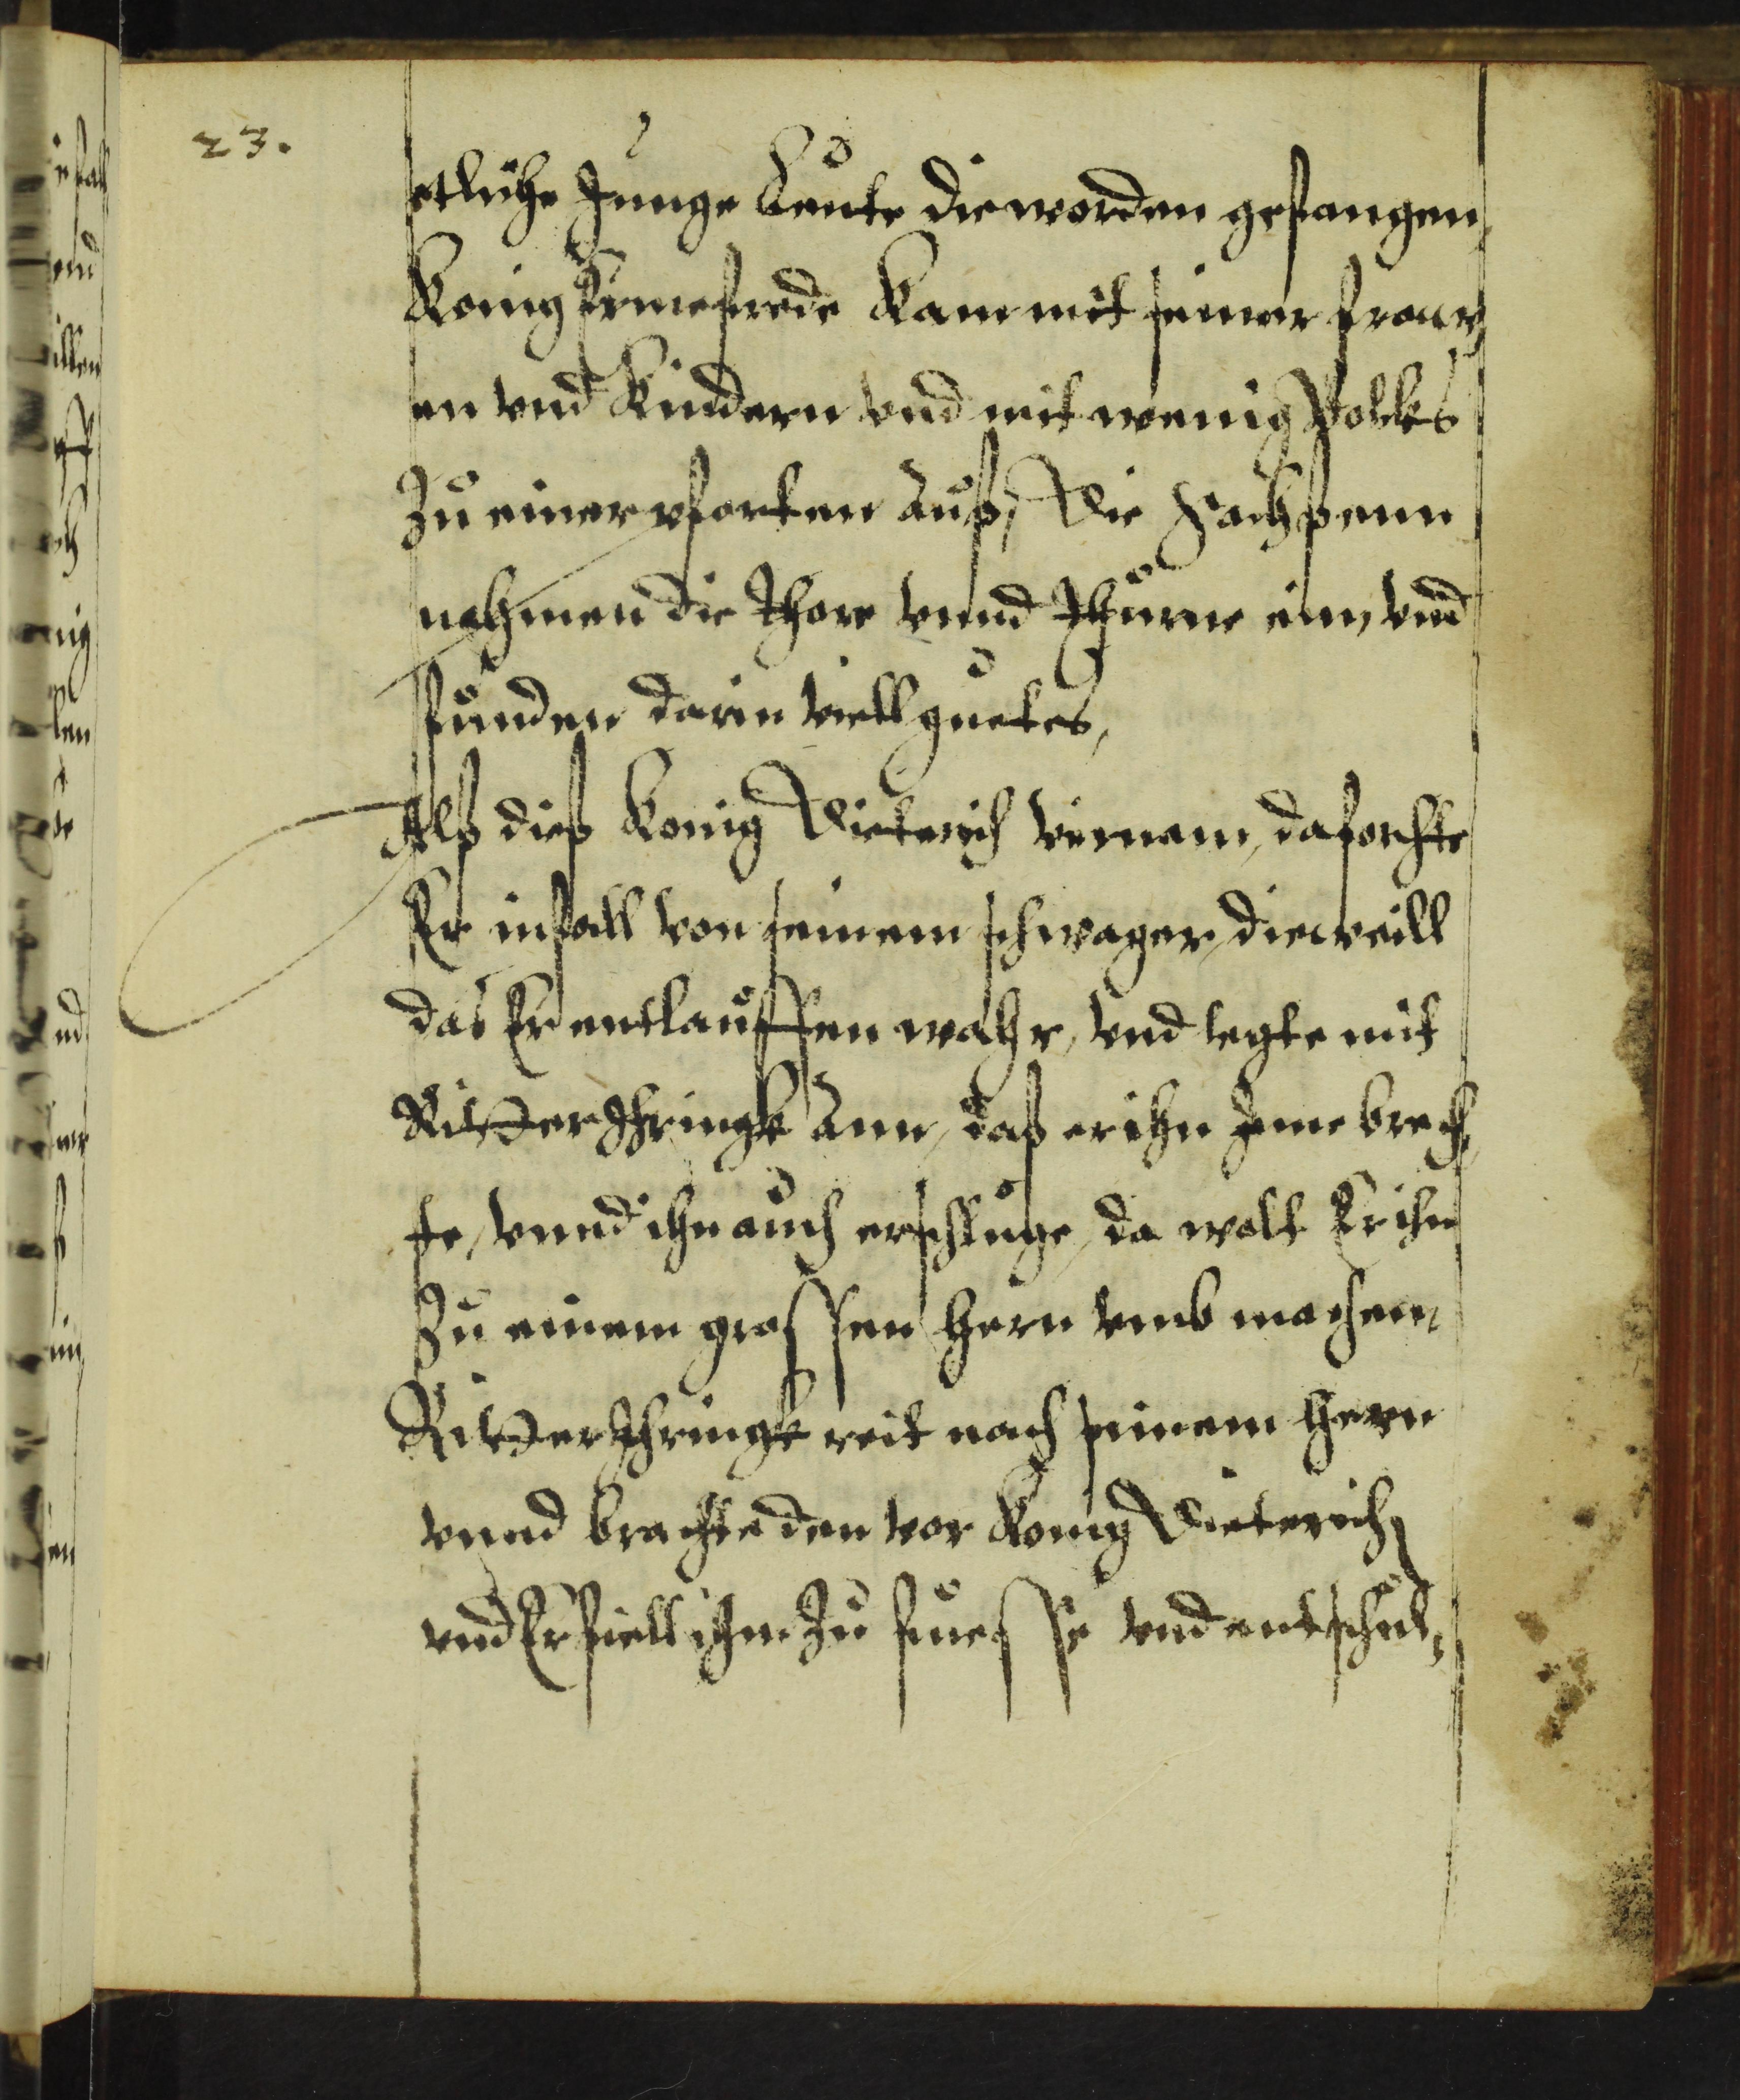 23.
etliche Junge Leute die worden gefangen,
Konig Ermefrede Kam mit seiner frow,,
en vnd Kindern vnd mit wenig Volcks
Zu einer pforten auß, Die Sachßenn
nahmen die Thore vnnd Thurne ein, vnd
funden darin viell guetes,
Alß dieß Konig Dieterich vernam, da forchte
Er infall von seinem schwager, dieweill
das Er entlauffen wahr, vnd legte mit
Ritter Ihringk ann, daß er ihn Jme brech,,
te, vnnd ihn auch erschluge, da wolt Er ihn
Zu einem grossen Hern vmb machen,
Ritter Ihringk reit nach seinem Hern
vnnd brachte den vor Konig Dieterich,
vnd Er fiell ihm Zu fuesse vnd entschul,,